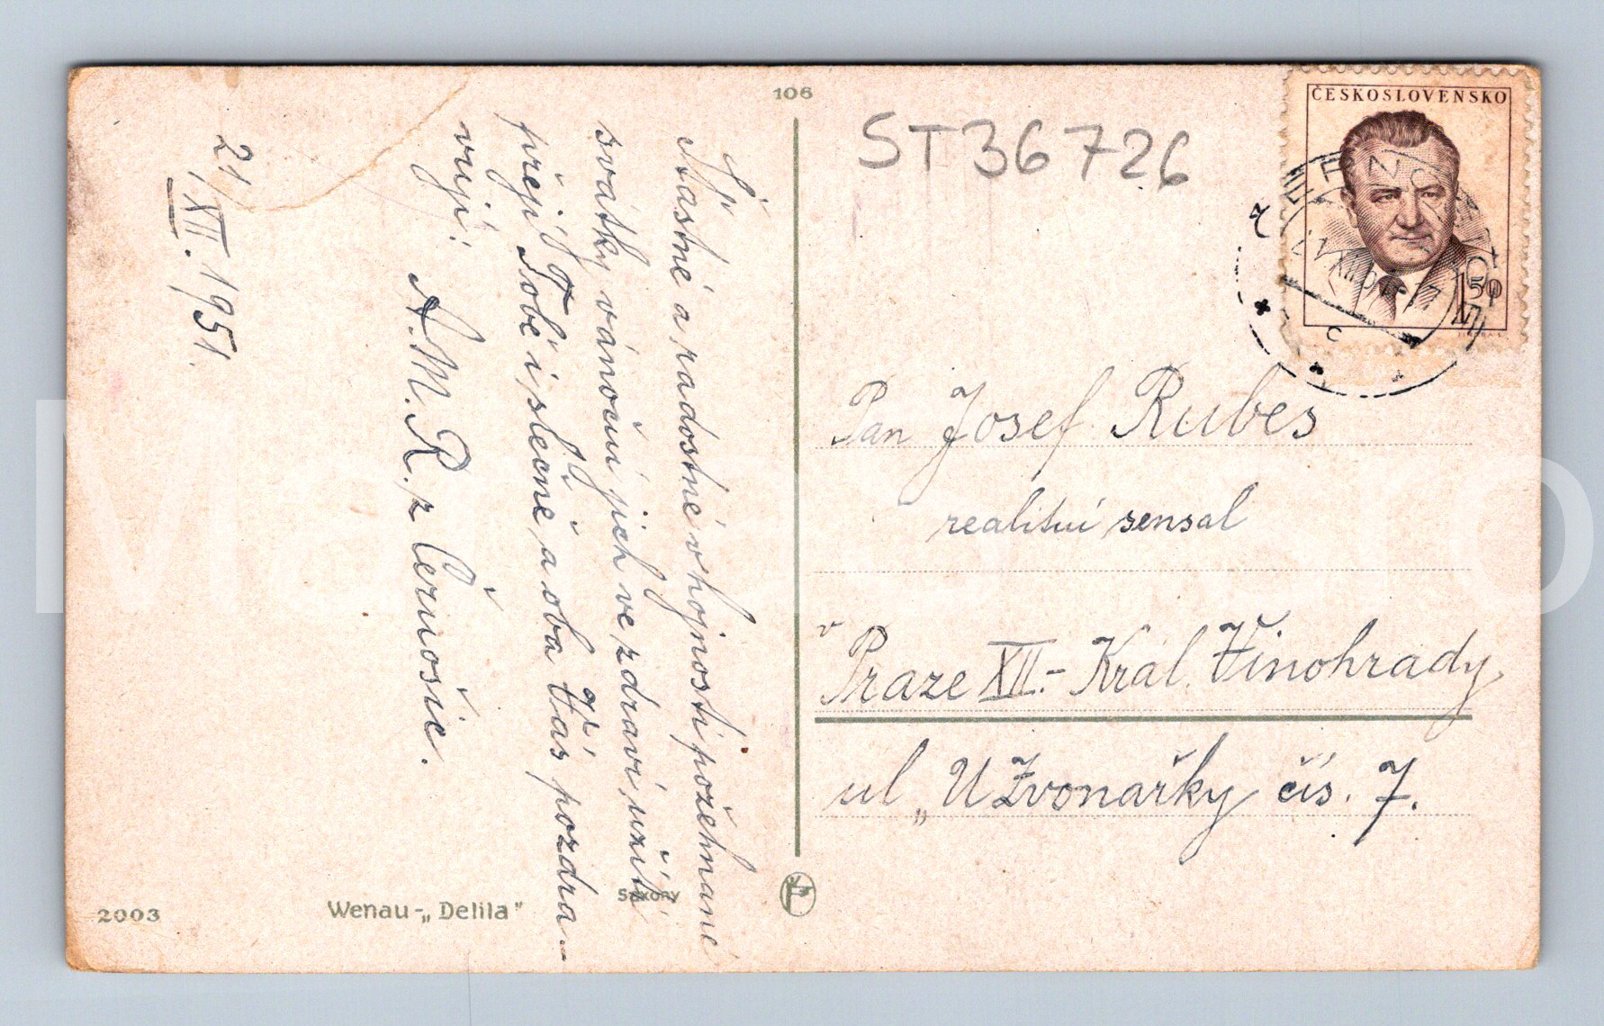 106
ST36726
ČESKOSLOVENSKO
1.50
Šťastné a radostné v hojnosti požehnané
svátky vánoční jich ve zdraví užíti
přeji Tobě i slečně a oba Vás pozdra-
vuji:
A. M. R. z Černošic.
21/XII. 1951.
Pan Josef Rubes
realitní sensal
v Praze XII.- Král. Vinohrady
ul „U Zvonařky čís. 7.
2003
Wenau-„Delila"
Saxony